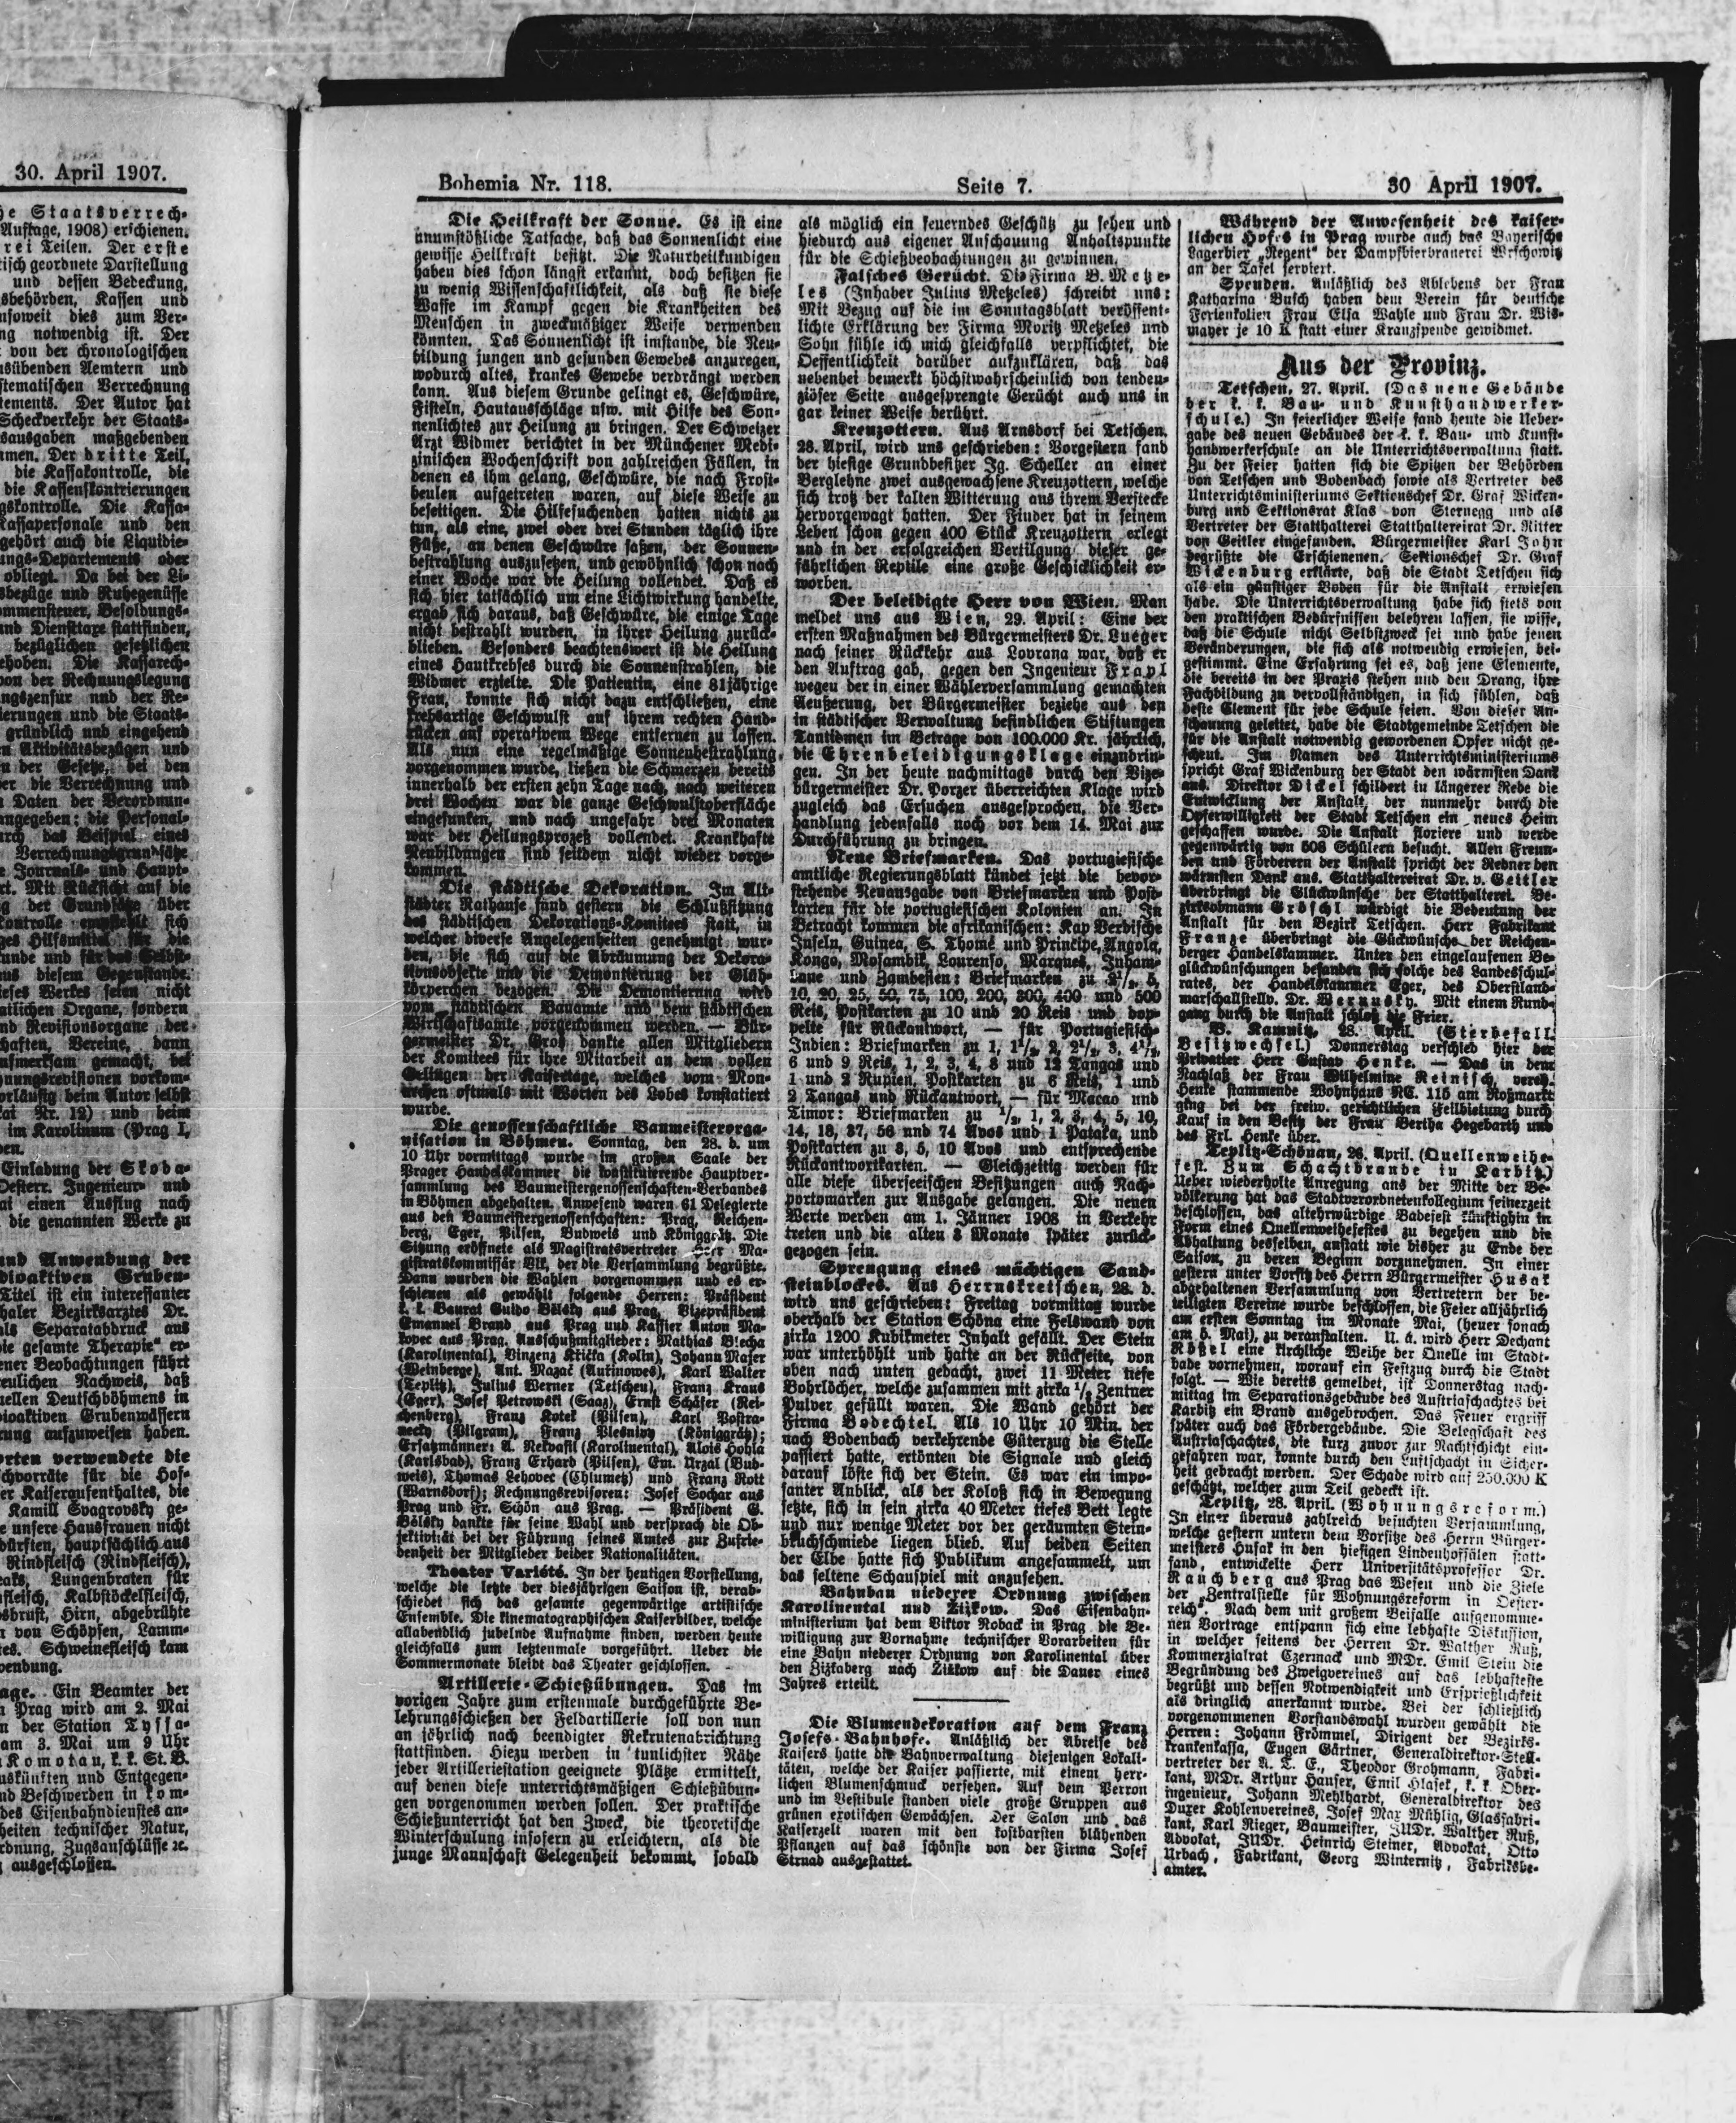 30. April 1907.
he Staatsverrech-
Auflage, 1908) erschienen.
rei Teilen. Der erste
tisch geordnete Darstellung
und dessen Bedeckung,
sbehörden, Kassen und
nsoweit dies zum Ver-
ng notwendig ist. Der
von der chronologischen
usübenden Aemtern und
stematischen Verrechnung
tements. Der Autor hat
Scheckverkehr der Staats-
sausgaben maßgebenden
men. Der dritte Teil,
die Kassakontrolle, die
die Kassenskontrierungen
gskontrolle. Die Kassa-
Kassapersonale und den
gehört auch die Liquidie-
ngs-Departements oder
obliegt. Da bei der Li-
sbezüge und Ruhegenüsse
ommensteuer, Besoldungs-
und Diensttaxe stattfinden,
bezüglichen gesetzlichen
ehoben. Die Kassarech-
von der Rechnungslegung
ngszensur und der Re-
ierungen und die Staats-
gründlich und eingehend
n Aktivitätsbezügen und
n der Gesetze, bei den
er die Verrechnung und
Daten der Verordnun-
angegeben: die Personal-
rch das Beispiel eines
Verrechnungsgrundsätze
e Journals- und Haupt-
rt. Mit Rücksicht auf die
g der Grundsätze über
Kontrolle empfiehlt sich
ges Hilfsmittel für die
unde und für das Selbst-
us diesem Gegenstande.
ieses Werkes seien nicht
atlichen Organe, sondern
nd Revisionsorgane der
haften, Vereine, dann
ufmerksam gemacht, bei
hnungsrevisionen vorkom-
orläufig beim Autor selbst
kai Nr. 12) und beim
im Karolinum (Prag I,
en.
Einladung der Skoda-
Oesterr. Ingenieur- und
ai einen Ausflug nach
die genannten Werke zu
und Anwendung der
dioaktiven Gruben-
Titel ist ein interessanter
haler Bezirksarztes Dr.
als Separatabdruck aus
ie gesamte Therapie" er-
ener Beobachtungen führt
reulichen Nachweis, daß
uellen Deutschböhmens in
dioaktiven Grubenwässern
rung aufzuweisen haben.
orten verwendete die
chvorräte für die Hof-
er Kaiseraufenthaltes, die
Kamill Svagrovsky ge-
e unsere Hausfrauen nicht
dürften, hauptsächlich aus
Rindfleisch (Rindfleisch),
eaks, Lungenbraten für
sfleisch, Kalbstöckelfleisch,
sbrust, Hirn, abgebrühte
n von Schöpsen, Lamm-
tes. Schweinefleisch kam
wendung.
age. Ein Beamter der
n Prag wird am 2. Mai
n der Station Tyssa-
am 3. Mai um 9 Uhr
Komotau, k. k. St. B.
uskünften und Entgegen-
nd Beschwerden in kom-
des Eisenbahndienstes an-
heiten technischer Natur,
rdnung, Zugsanschlüsse ec.
ausgeschlossen.
Bohemia Nr. 118. Seite 7. 30 April 1907.
Die Heilkraft der Sonne. Es ist eine
unumstößliche Tatsache, daß das Sonnenlicht eine
gewisse Heilkraft besitzt. Die Naturheilkundigen
haben dies schon längst erkannt, doch besitzen sie
zu wenig Wissenschaftlichkeit, als daß sie diese
Waffe im Kampf gegen die Krankheiten des
Menschen in zweckmäßiger Weise verwenden
könnten. Das Sonnenlicht ist imstande, die Neu-
bildung jungen und gesunden Gewebes anzuregen,
wodurch altes, krankes Gewebe verdrängt werden
kann. Aus diesem Grunde gelingt es, Geschwüre,
Fisteln, Hautausschläge usw. mit Hilfe des Son-
nenlichtes zur Heilung zu bringen. Der Schweizer
Arzt Widmer berichtet in der Münchener Medi-
zinischen Wochenschrift von zahlreichen Fällen, in
denen es ihm gelang, Geschwüre, die nach Frost-
beulen aufgetreten waren, auf diese Weise zu
beseitigen. Die Hilfesuchenden hatten nichts zu
tun, als eine, zwei oder drei Stunden täglich ihre
Füße, an denen Geschwüre saßen, der Sonnen-
bestrahlung auszusetzen, und gewöhnlich schon nach
einer Woche war die Heilung vollendet. Daß es
sich hier tatsächlich um eine Lichtwirkung handelte,
ergab sich daraus, daß Geschwüre, die einige Tage
nicht bestrahlt wurden, in ihrer Heilung zurück-
blieben. Besonders beachtenswert ist die Heilung
eines Hautkrebses durch die Sonnenstrahlen, die
Widmer erzielte. Die Patientin, eine 81jährige
Frau, konnte sich nicht dazu entschließen, eine
krebsartige Geschwulst auf ihrem rechten Hand-
rücken auf operativem Wege entfernen zu lassen.
Als nun eine regelmäßige Sonnenbestrahlung
vorgenommen wurde, ließen die Schmerzen bereits
innerhalb der ersten zehn Tage nach, nach weiteren
drei Wochen war die ganze Geschwulstoberfläche
eingesunken, und nach ungefähr drei Monaten
war der Heilungsprozeß vollendet. Krankhafte
Neubildungen sind seitdem nicht wieder vorge-
kommen.
Die städtische Dekoration. Im Alt-
städter Rathause fand gestern die Schlußsitzung
des städtischen Dekorations-Komitees statt, in
welcher diverse Angelegenheiten genehmigt wur-
den, die sich auf die Abräumung der Dekora-
tionsobjekte und die Demontierung der Glüh-
körperchen bezogen. Die Demontierung wird
vom städtischen Bauamte und dem städtischen
Wirtschaftsamte vorgenommen werden. — Bür-
germeister Dr. Groß dankte allen Mitgliedern
der Komitees für ihre Mitarbeit an dem vollen
Gelingen der Kaisertage, welches vom Mon-
archen oftmals mit Worten des Lobes konstatiert
wurde.
Die genossenschaftliche Baumeisterorga-
nisation in Böhmen. Sonntag, den 28. d. um
10 Uhr vormittags wurde im großen Saale der
Prager Handelskammer die konstituierende Hauptver-
sammlung des Baumeistergenossenschaften-Verbandes
in Böhmen abgehalten. Anwesend waren 61 Delegierte
aus den Baumeistergenossenschaften: Prag, Reichen-
berg, Eger, Pilsen, Budweis und Königgrätz. Die
Sitzung eröffnete als Magistratsvertreter Herr Ma-
gistratskommissär Vlk, der die Versammlung begrüßte.
Dann wurden die Wahlen vorgenommen und es er-
schienen als gewählt folgende Herren: Präsident
k. k. Baurat Guido Bělsky aus Prag, Vizepräsident
Emanuel Brand aus Prag und Kassier Anton Ma-
kovec aus Prag. Ausschußmitglieder: Mathias Blecha
(Karolinental), Vinzenz Křička (Kolin), Johann Majer
(Weinberge), Ant. Mazač (Autinowes), Karl Walter
(Teplitz), Julius Werner (Tetschen), Franz Kraus
(Eger), Josef Petrowski (Saaz), Ernst Schäfer (Rei-
chenberg), Franz Kotek (Pilsen), Karl Postra-
necky (Pilgram), Franz Plesniwy (Königgrätz);
Ersatzmänner: A. Nekvasil (Karolinental), Alois Hobla
(Karlsbad), Franz Erhard (Pilsen), Em. Urzal (Bud-
weis), Thomas Lehovec (Chlumetz) und Franz Rott
(Warnsdorf); Rechnungsrevisoren: Josef Sochar aus
Prag und Fr. Schön aus Prag. — Präsident G.
Bělsky dankte für seine Wahl und versprach die Ob-
jektivität bei der Führung seines Amtes zur Zufrie-
denheit der Mitglieder beider Nationalitäten.
Theater Variété. In der heutigen Vorstellung,
welche die letzte der diesjährigen Saison ist, verab-
schiedet sich das gesamte gegenwärtige artistische
Ensemble. Die kinematographischen Kaiserbilder, welche
allabendlich jubelnde Aufnahme finden, werden heute
gleichfalls zum letztenmale vorgeführt. Ueber die
Sommermonate bleibt das Theater geschlossen.
Artillerie-Schießübungen. Das im
vorigen Jahre zum erstenmale durchgeführte Be-
lehrungsschießen der Feldartillerie soll von nun
an jährlich nach beendigter Rekrutenabrichtung
stattfinden. Hiezu werden in tunlichster Nähe
jeder Artilleriestation geeignete Plätze ermittelt,
auf denen diese unterrichtsmäßigen Schießübun-
gen vorgenommen werden sollen. Der praktische
Schießunterricht hat den Zweck, die theoretische
Winterschulung insofern zu erleichtern, als die
junge Mannschaft Gelegenheit bekommt, sobald
als möglich ein feuerndes Geschütz zu sehen und
hiedurch aus eigener Anschauung Anhaltspunkte
für die Schießbeobachtungen zu gewinnen.
Falsches Gerücht. Die Firma B. Metze-
les (Inhaber Julius Metzeles) schreibt uns:
Mit Bezug auf die im Sonntagsblatt veröffent-
lichte Erklärung der Firma Moritz Metzeles und
Sohn fühle ich mich gleichfalls verpflichtet, die
Oeffentlichkeit darüber aufzuklären, daß das
nebenbei bemerkt höchstwahrscheinlich von tenden-
ziöser Seite ausgesprengte Gerücht auch uns in
gar keiner Weise berührt.
Kreuzottern. Aus Arnsdorf bei Tetschen,
28. April, wird uns geschrieben: Vorgestern fand
der hiesige Grundbesitzer Jg. Scheller an einer
Berglehne zwei ausgewachsene Kreuzottern, welche
sich trotz der kalten Witterung aus ihrem Verstecke
hervorgewagt hatten. Der Finder hat in seinem
Leben schon gegen 400 Stück Kreuzottern erlegt
und in der erfolgreichen Vertilgung dieser ge-
fährlichen Reptile eine große Geschicklichkeit er-
worben.
Der beleidigte Herr von Wien. Man
meldet uns aus Wien, 29. April: Eine der
ersten Maßnahmen des Bürgermeisters Dr. Lueger
nach seiner Rückkehr aus Lovrana war, daß er
den Auftrag gab, gegen den Ingenieur Frapl
wegen der in einer Wählerversammlung gemachten
Aeußerung, der Bürgermeister beziehe aus den
in städtischer Verwaltung befindlichen Stiftungen
Tantiemen im Betrage von 100.000 Kr. jährlich,
die Ehrenbeleidigungsklage einzubrin-
gen. In der heute nachmittags durch den Vize-
bürgermeister Dr. Porzer überreichten Klage wird
zugleich das Ersuchen ausgesprochen, die Ver-
handlung jedenfalls noch vor dem 14. Mai zur
Durchführung zu bringen.
Neue Briefmarken. Das portugiesische
amtliche Regierungsblatt kündet jetzt die bevor-
stehende Neuausgabe von Briefmarken und Post-
karten für die portugiesischen Kolonien an. In
Betracht kommen die afrikanischen: Kap Verdische
Inseln, Guinea, S. Thomé und Principe, Angola,
Kongo, Mosambik, Lourenso, Marques, Inham-
bane und Zambesien: Briefmarken zu 2½, 5,
10, 20, 25, 50, 75, 100, 200, 300, 400 und 500
Reis, Postkarten zu 10 und 20 Reis und dop-
pelte für Rückantwort, — für Portugiesisch-
Indien: Briefmarken zu 1, 1½, 2, 2½, 3, 4½,
6 und 9 Reis, 1, 2, 3, 4, 8 und 12 Tangas und
1 und 2 Rupien, Postkarten zu 6 Reis, 1 und
2 Tangas und Rückantwort, — für Macao und
Timor: Briefmarken zu ½, 1, 2, 3, 4, 5, 10,
14, 18, 37, 56 und 74 Avos und 1 Pataka, und
Postkarten zu 3, 5, 10 Avos und entsprechende
Rückantwortkarten. — Gleichzeitig werden für
alle diese überseeischen Besitzungen auch Nach-
portomarken zur Ausgabe gelangen. Die neuen
Werte werden am 1. Jänner 1908 in Verkehr
treten und die alten 3 Monate später zurück-
gezogen sein.
Sprengung eines mächtigen Sand-
steinblockes. Aus Herrnskretschen, 28. d.
wird uns geschrieben: Freitag vormittag wurde
oberhalb der Station Schöna eine Felswand von
zirka 1200 Kubikmeter Inhalt gefällt. Der Stein
war unterhöhlt und hatte an der Rückseite, von
oben nach unten gedacht, zwei 11 Meter tiefe
Bohrlöcher, welche zusammen mit zirka ½ Zentner
Pulver gefüllt waren. Die Wand gehört der
Firma Bodechtel. Als 10 Uhr 10 Min. der
nach Bodenbach verkehrende Güterzug die Stelle
passiert hatte, ertönten die Signale und gleich
darauf löste sich der Stein. Es war ein impo-
santer Anblick, als der Koloß sich in Bewegung
setzte, sich in sein zirka 40 Meter tiefes Bett legte
und nur wenige Meter vor der geräumten Stein-
bruchschmiede liegen blieb. Auf beiden Seiten
der Elbe hatte sich Publikum angesammelt, um
das seltene Schauspiel mit anzusehen.
Bahnbau niederer Ordnung zwischen
Karolinental und Žižkow. Das Eisenbahn-
ministerium hat dem Viktor Noback in Prag die Be-
willigung zur Vornahme technischer Vorarbeiten für
eine Bahn niederer Ordnung von Karolinental über
den Žižkaberg nach Žižkow auf die Dauer eines
Jahres erteilt.
Die Blumendekoration auf dem Franz
Josefs-Bahnhofe. Anläßlich der Abreise des
Kaisers hatte die Bahnverwaltung diejenigen Lokali-
täten, welche der Kaiser passierte, mit einem herr-
lichen Blumenschmuck versehen. Auf dem Perron
und im Vestibule standen viele große Gruppen aus
grünen exotischen Gewächsen. Der Salon und das
Kaiserzelt waren mit den kostbarsten blühenden
Pflanzen auf das schönste von der Firma Josef
Strnad ausgestattet.
Während der Anwesenheit des kaiser-
lichen Hofes in Prag wurde auch das Bayerische
Lagerbier „Regent" der Dampfbierbrauerei Wrschowitz
an der Tafel serviert.
Spenden. Anläßlich des Ablebens der Frau
Katharina Busch haben dem Verein für deutsche
Ferienkolien Frau Elsa Wahle und Frau Dr. Wis-
mayer je 10 K statt einer Kranzspende gewidmet.
Aus der Provinz.
Tetschen, 27. April. (Das neue Gebäude
der k. k. Bau- und Kunsthandwerker-
schule.) In feierlicher Weise fand heute die Ueber-
gabe des neuen Gebäudes der k. k. Bau- und Kunst-
handwerkerschule an die Unterrichtsverwaltung statt.
Zu der Feier hatten sich die Spitzen der Behörden
von Tetschen und Bodenbach sowie als Vertreter des
Unterrichtsministeriums Sektionschef Dr. Graf Wicken-
burg und Sektionsrat Klas von Sternegg und als
Vertreter der Statthalterei Statthaltereirat Dr. Ritter
von Geitler eingefunden. Bürgermeister Karl John
begrüßte die Erschienenen. Sektionschef Dr. Graf
Wickenburg erklärte, daß die Stadt Tetschen sich
als ein günstiger Boden für die Anstalt erwiesen
habe. Die Unterrichtsverwaltung habe sich stets von
den praktischen Bedürfnissen belehren lassen, sie wisse,
daß die Schule nicht Selbstzweck sei und habe jenen
Veränderungen, die sich als notwendig erwiesen, bei-
gestimmt. Eine Erfahrung sei es, daß jene Elemente,
die bereits in der Praxis stehen und den Drang, ihre
Fachbildung zu vervollständigen, in sich fühlen, das
beste Element für jede Schule seien. Von dieser An-
schauung geleitet, habe die Stadtgemeinde Tetschen die
für die Anstalt notwendig gewordenen Opfer nicht ge-
scheut. Im Namen des Unterrichtsministeriums
spricht Graf Wickenburg der Stadt den wärmsten Dank
aus. Direktor Dickel schildert in längerer Rede die
Entwicklung der Anstalt, der nunmehr durch die
Opferwilligkeit der Stadt Tetschen ein neues Heim
geschaffen wurde. Die Anstalt floriere und werde
gegenwärtig von 608 Schülern besucht. Allen Freun-
den und Förderern der Anstalt spricht der Redner den
wärmsten Dank aus. Statthaltereirat Dr. v. Geitler
überbringt die Glückwünsche der Statthalterei. Be-
zirksobmann Gröschl würdigt die Bedeutung der
Anstalt für den Bezirk Tetschen. Herr Fabrikant
Franze überbringt die Gückwünsche der Reichen-
berger Handelskammer. Unter den eingelaufenen Be-
glückwünschungen befanden sich solche des Landesschul-
rates, der Handelskammer Eger, des Oberstland-
marschallstellv. Dr. Wernusky. Mit einem Rund-
gang durch die Anstalt schloß die Feier.
B. Kamnitz, 28. April. (Sterbefall.
Besitzwechsel.) Donnerstag verschied hier der
Privatier Herr Gustav Henke. — Das in dem
Nachlaß der Frau Wilhelmine Reinisch, verew.
Henke stammende Wohnhaus NC. 115 am Roßmarkt
ging bei der freiw. gerichtlichen Feilbietung durch
Kauf in den Besitz der Frau Bertha Hegebarth und
des Frl. Henke über.
Teplitz-Schönau, 28. April. (Quellenweihe-
fest. Zum Schachtbrande in Karbitz.)
Ueber wiederholte Anregung aus der Mitte der Be-
völkerung hat das Stadtverordnetenkollegium seinerzeit
beschlossen, das altehrwürdige Badefest künftighin in
Form eines Quellenweihefestes zu begehen und die
Abhaltung desselben, anstatt wie bisher zu Ende der
Saison, zu deren Beginn vorzunehmen. In einer
gestern unter Vorsitz des Herrn Bürgermeister Husak
abgehaltenen Versammlung von Vertretern der be-
teiligten Vereine wurde beschlossen, die Feier alljährlich
am ersten Sonntag im Monate Mai, (heuer sonach
am 5. Mai), zu veranstalten. U. a. wird Herr Dechant
Rößel eine kirchliche Weihe der Quelle im Stadt-
bade vornehmen, worauf ein Festzug durch die Stadt
folgt. — Wie bereits gemeldet, ist Donnerstag nach-
mittag im Separationsgebäude des Austriaschachtes bei
Karbitz ein Brand ausgebrochen. Das Feuer ergriff
später auch das Fördergebäude. Die Belegschaft des
Austriaschachtes, die kurz zuvor zur Nachtschicht ein-
gefahren war, konnte durch den Luftschacht in Sicher-
heit gebracht werden. Der Schade wird auf 250.000 K
geschätzt, welcher zum Teil gedeckt ist.
Teplitz, 28. April. (Wohnungsreform.)
In einer überaus zahlreich besuchten Versammlung,
welche gestern untern dem Vorsitze des Herrn Bürger-
meisters Husak in den hiesigen Lindenhofsälen statt-
fand, entwickelte Herr Universitätsprofessor Dr.
Rauchberg aus Prag das Wesen und die Ziele
der „Zentralstelle für Wohnungsreform in Oester-
reich". Nach dem mit großem Beifalle aufgenomme-
nen Vortrage entspann sich eine lebhafte Diskussion,
in welcher seitens der Herren Dr. Walther Ruß,
Kommerzialrat Czermack und MDr. Emil Stein die
Begründung des Zweigvereines auf das lebhafteste
begrüßt und dessen Notwendigkeit und Ersprießlichkeit
als dringlich anerkannt wurde. Bei der schließlich
vorgenommenen Vorstandswahl wurden gewählt die
Herren: Johann Frömmel, Dirigent der Bezirks-
krankenkassa, Eugen Gärtner, Generaldirektor-Stell-
vertreter der A. T. E., Theodor Grohmann, Fabri-
kant, MDr. Arthur Hanser, Emil Hlasek, k. k. Ober-
ingenieur, Johann Mehlhardt, Generaldirektor des
Duxer Kohlenvereines, Josef Max Mühlig, Glasfabri-
kant, Karl Rieger, Baumeister, JUDr. Walther Ruß,
Advokat, JUDr. Heinrich Steiner, Advokat, Otto
Urbach, Fabrikant, Georg Winternitz, Fabriksbe-
amter.